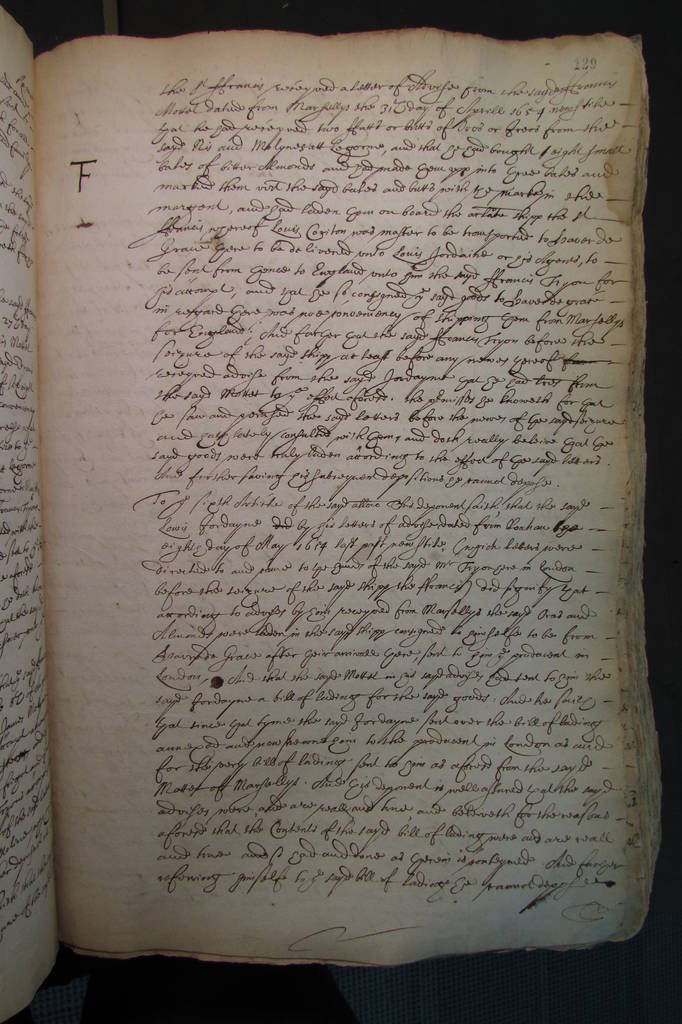 129
the St ffrancis received a letter of Advise from the sayd ffrancis
Mottet dated from Marsellys the 31th day of Aprill 1654 new stile
that he had received two ffatts or butts of from the
sayd and Molynes att Legorne, and that he had bought eight small
bales of bitter Almonds and had made them upp into three bales and
marked them with the sayd bales and butts with the marke in the
margent, and had laden them on board the arlate shipp the St
F
ffrancis whereof Louis was master to be transported to Haver de
Grace there to be delivered unto Louis Jordaine or his Agents, to
be sent from thence to England unto him the sayd ffrancis Tryon for
his accompt, and that he so consigned ye sayd goods to Haver de grace
in reguard there was noe conveniency of shipping them from Marsellys
for England. And farther that the sayd ffrancis Tryon before the
seizure of the sayd shipp at least before any newes thereof
received advise from the sayd Jordayne that he had from
the sayd Mottet to ye effect aforesd. the premisses he knoweth for that
he saw and perused the sayd letters before the newes of the sayd seizure
and hath lately consulted with them, and doth really beleive that the
sayd goods were truly laden according to the effect of the sayd letters.
And further saving his subsequent depositions he cannot depose.
To ye sixth Article of the sayd allon This deponent saith, that the sayd
Lewis Jordayne did by his letters of advise dated from Roahan the
eighth day of May 1654 last past new stile, (which letters were
directed to and came to the hands of the sayd Mr Tryon here in London
before the seizure of the sayd shipp the ffrancis) did signify that
according to advises by him received from Marsellys the sayd and
Almonds were laden in the sayd shipp consigned to himselfe to be from
Haver de Grace after their arrivall there, sent to him ye producent in
London, And that the sayd Mottet in his sayd advises had sent to him the
sayd Jordayne a bill of lading for the sayd goods. And hee saith
that since that tyme the sayd Jordayne sent over the bill of lading
annexed and now shewne him to the producent in London as and
for the very bill of lading sent to him as aforesd from the sayd
Mottet of Marsellys. And this deponent is well assured that the sayd
advises were and are reall and true and beleiveth for the reasons
aforesd that the Contents of the sayd bill of lading were and are reall
and true and so had and done as therein is conteyned. And further
referring himselfe to ye sayd bill of lading he cannot depose